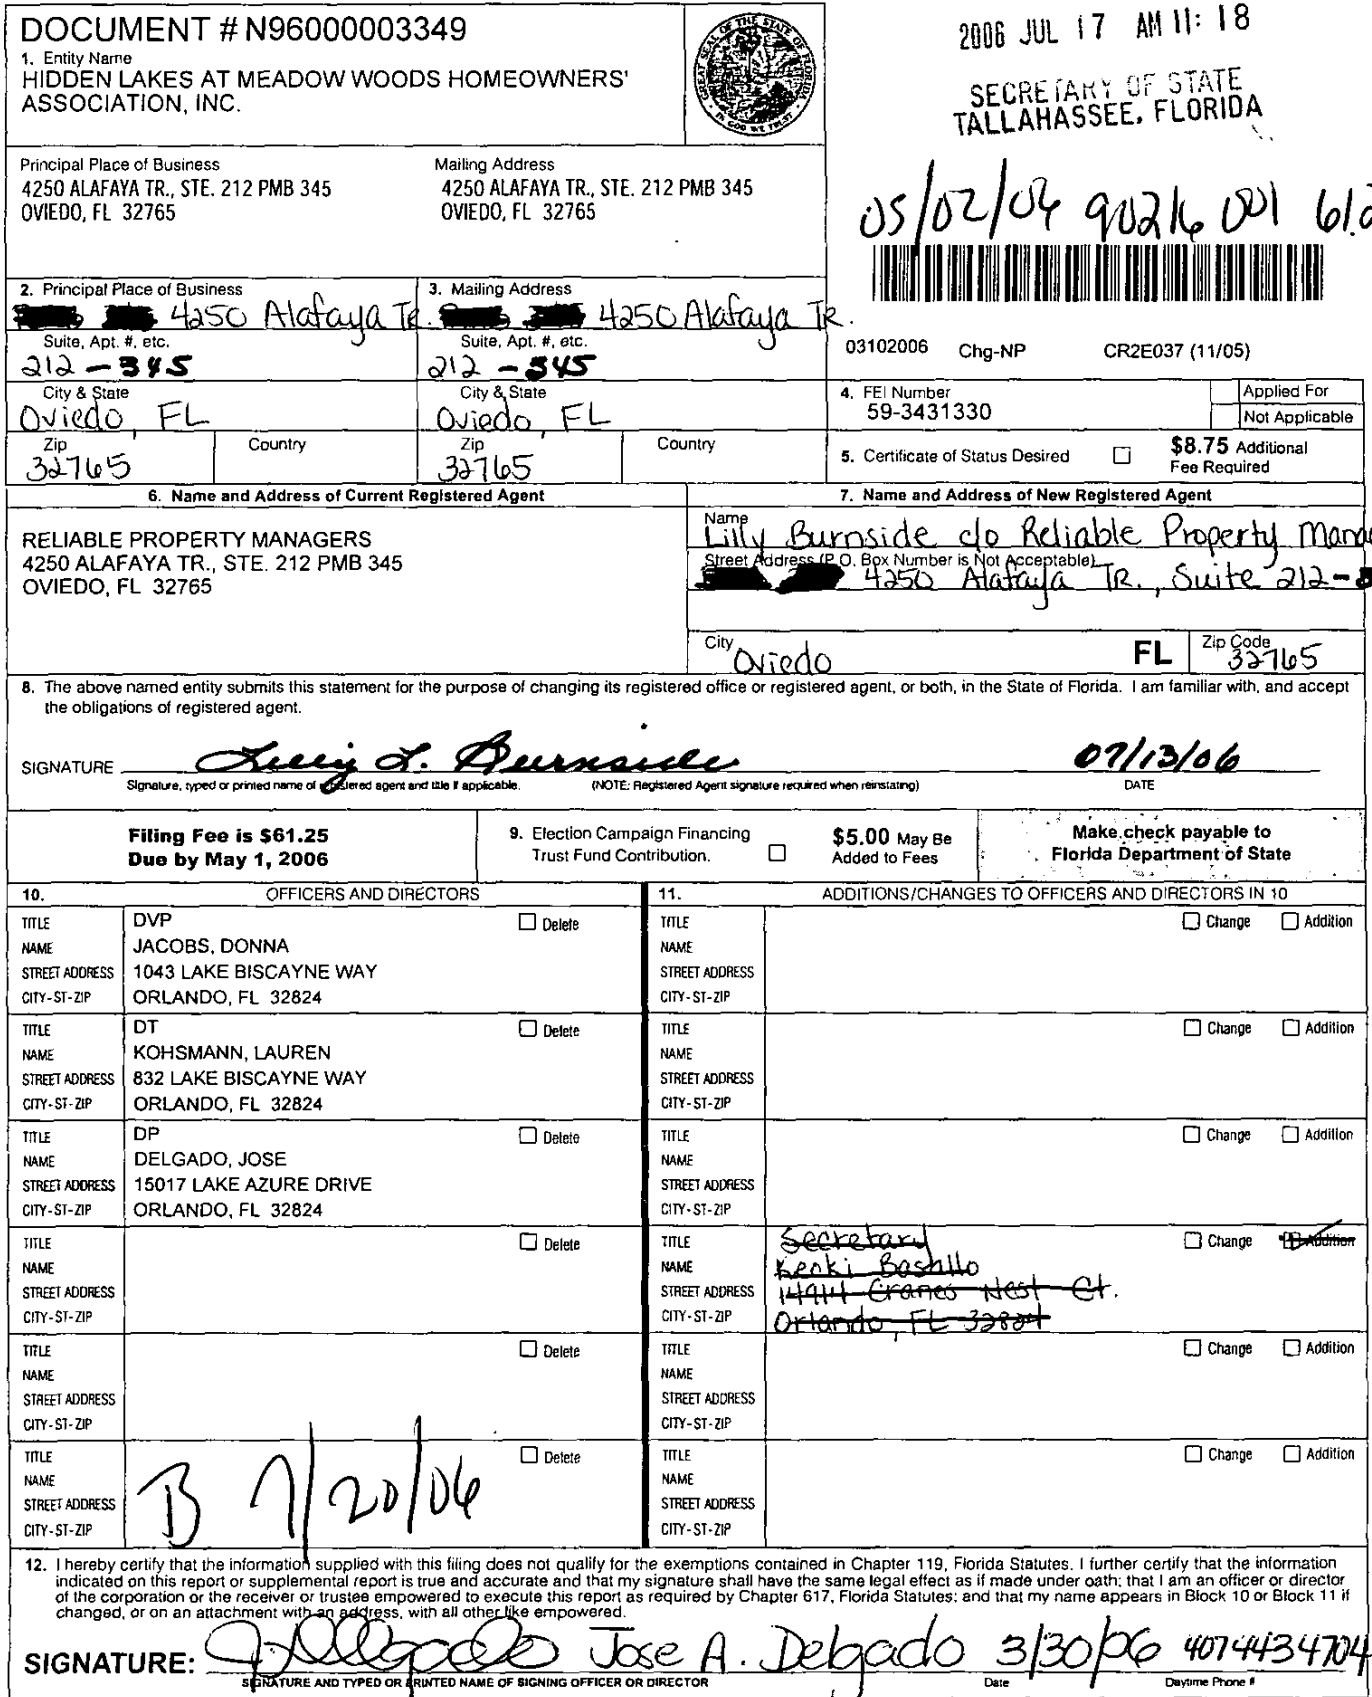 DOCUMENT # N96000003349
1. Entity Name
HIDDEN LAKES AT MEADOW WOODS HOMEOWNERS'
ASSOCIATION, INC.
GREAT SEAL OF THE STATE OF FLORIDA
IN GOD WE TRUST
2006 JUL 17 AM 11: 18
SECRETARY OF STATE
TALLAHASSEE, FLORIDA
Principal Place of Business
4250 ALAFAYA TR., STE. 212 PMB 345
OVIEDO, FL 32765
Mailing Address
4250 ALAFAYA TR., STE. 212 PMB 345
OVIEDO, FL 32765
05/02/06 90216 001
2. Principal Place of Business
4250 Alafaya TR.
Suite, Apt. #, etc.
212 - 345
City & State
Oviedo, FL
Zip
32765
Country
3. Mailing Address
4250 Alafaya TR.
Suite, Apt. #, etc.
212 - 345
City & State
Oviedo, FL
Zip
32765
Country
03102006 Chg-NP CR2E037 (11/05)
4. FEI Number
59-3431330
Applied For
Not Applicable
5. Certificate of Status Desired
$8.75 Additional
Fee Required
6. Name and Address of Current Registered Agent
RELIABLE PROPERTY MANAGERS
4250 ALAFAYA TR., STE. 212 PMB 345
OVIEDO, FL 32765
7. Name and Address of New Registered Agent
Name
Lilly Burnside c/o Reliable Property
Street Address (P.O. Box Number is Not Acceptable)
4250 Alafaya TR., Suite 212-
City
Oviedo
FL
Zip Code
32765
8. The above named entity submits this statement for the purpose of changing its registered office or registered agent, or both, in the State of Florida. I am familiar with, and accept
the obligations of registered agent.
SIGNATURE Lilly L. Burnside 07/13/06
Signature, typed or printed name of registered agent and title if applicable. (NOTE: Registered Agent signature required when reinstating) DATE
Filing Fee is $61.25
Due by May 1, 2006
9. Election Campaign Financing
Trust Fund Contribution.
$5.00 May Be
Added to Fees
Make check payable to
Florida Department of State
10. OFFICERS AND DIRECTORS
TITLE DVP Delete
NAME JACOBS, DONNA
STREET ADDRESS 1043 LAKE BISCAYNE WAY
CITY-ST-ZIP ORLANDO, FL 32824
TITLE DT Delete
NAME KOHSMANN, LAUREN
STREET ADDRESS 832 LAKE BISCAYNE WAY
CITY-ST-ZIP ORLANDO, FL 32824
TITLE DP Delete
NAME DELGADO, JOSE
STREET ADDRESS 15017 LAKE AZURE DRIVE
CITY-ST-ZIP ORLANDO, FL 32824
TITLE Delete
NAME
STREET ADDRESS
CITY-ST-ZIP
TITLE Delete
NAME
STREET ADDRESS
CITY-ST-ZIP
TITLE Delete
NAME
STREET ADDRESS
CITY-ST-ZIP
B 7/20/06
11. ADDITIONS/CHANGES TO OFFICERS AND DIRECTORS IN 10
TITLE Change Addition
NAME
STREET ADDRESS
CITY-ST-ZIP
TITLE Change Addition
NAME
STREET ADDRESS
CITY-ST-ZIP
TITLE Change Addition
NAME
STREET ADDRESS
CITY-ST-ZIP
TITLE Secretary Change Addition
NAME
STREET ADDRESS 14914 Cranes Nest Ct.
CITY-ST-ZIP Orlando, FL 32824
TITLE Change Addition
NAME
STREET ADDRESS
CITY-ST-ZIP
TITLE Change Addition
NAME
STREET ADDRESS
CITY-ST-ZIP
12. I hereby certify that the information supplied with this filing does not qualify for the exemptions contained in Chapter 119, Florida Statutes. I further certify that the information
indicated on this report or supplemental report is true and accurate and that my signature shall have the same legal effect as if made under oath; that I am an officer or director
of the corporation or the receiver or trustee empowered to execute this report as required by Chapter 617, Florida Statutes; and that my name appears in Block 10 or Block 11 if
changed, or on an attachment with an address, with all other like empowered.
SIGNATURE: Jose A. Delgado 3/30/06 4074434704
SIGNATURE AND TYPED OR PRINTED NAME OF SIGNING OFFICER OR DIRECTOR Date Daytime Phone #